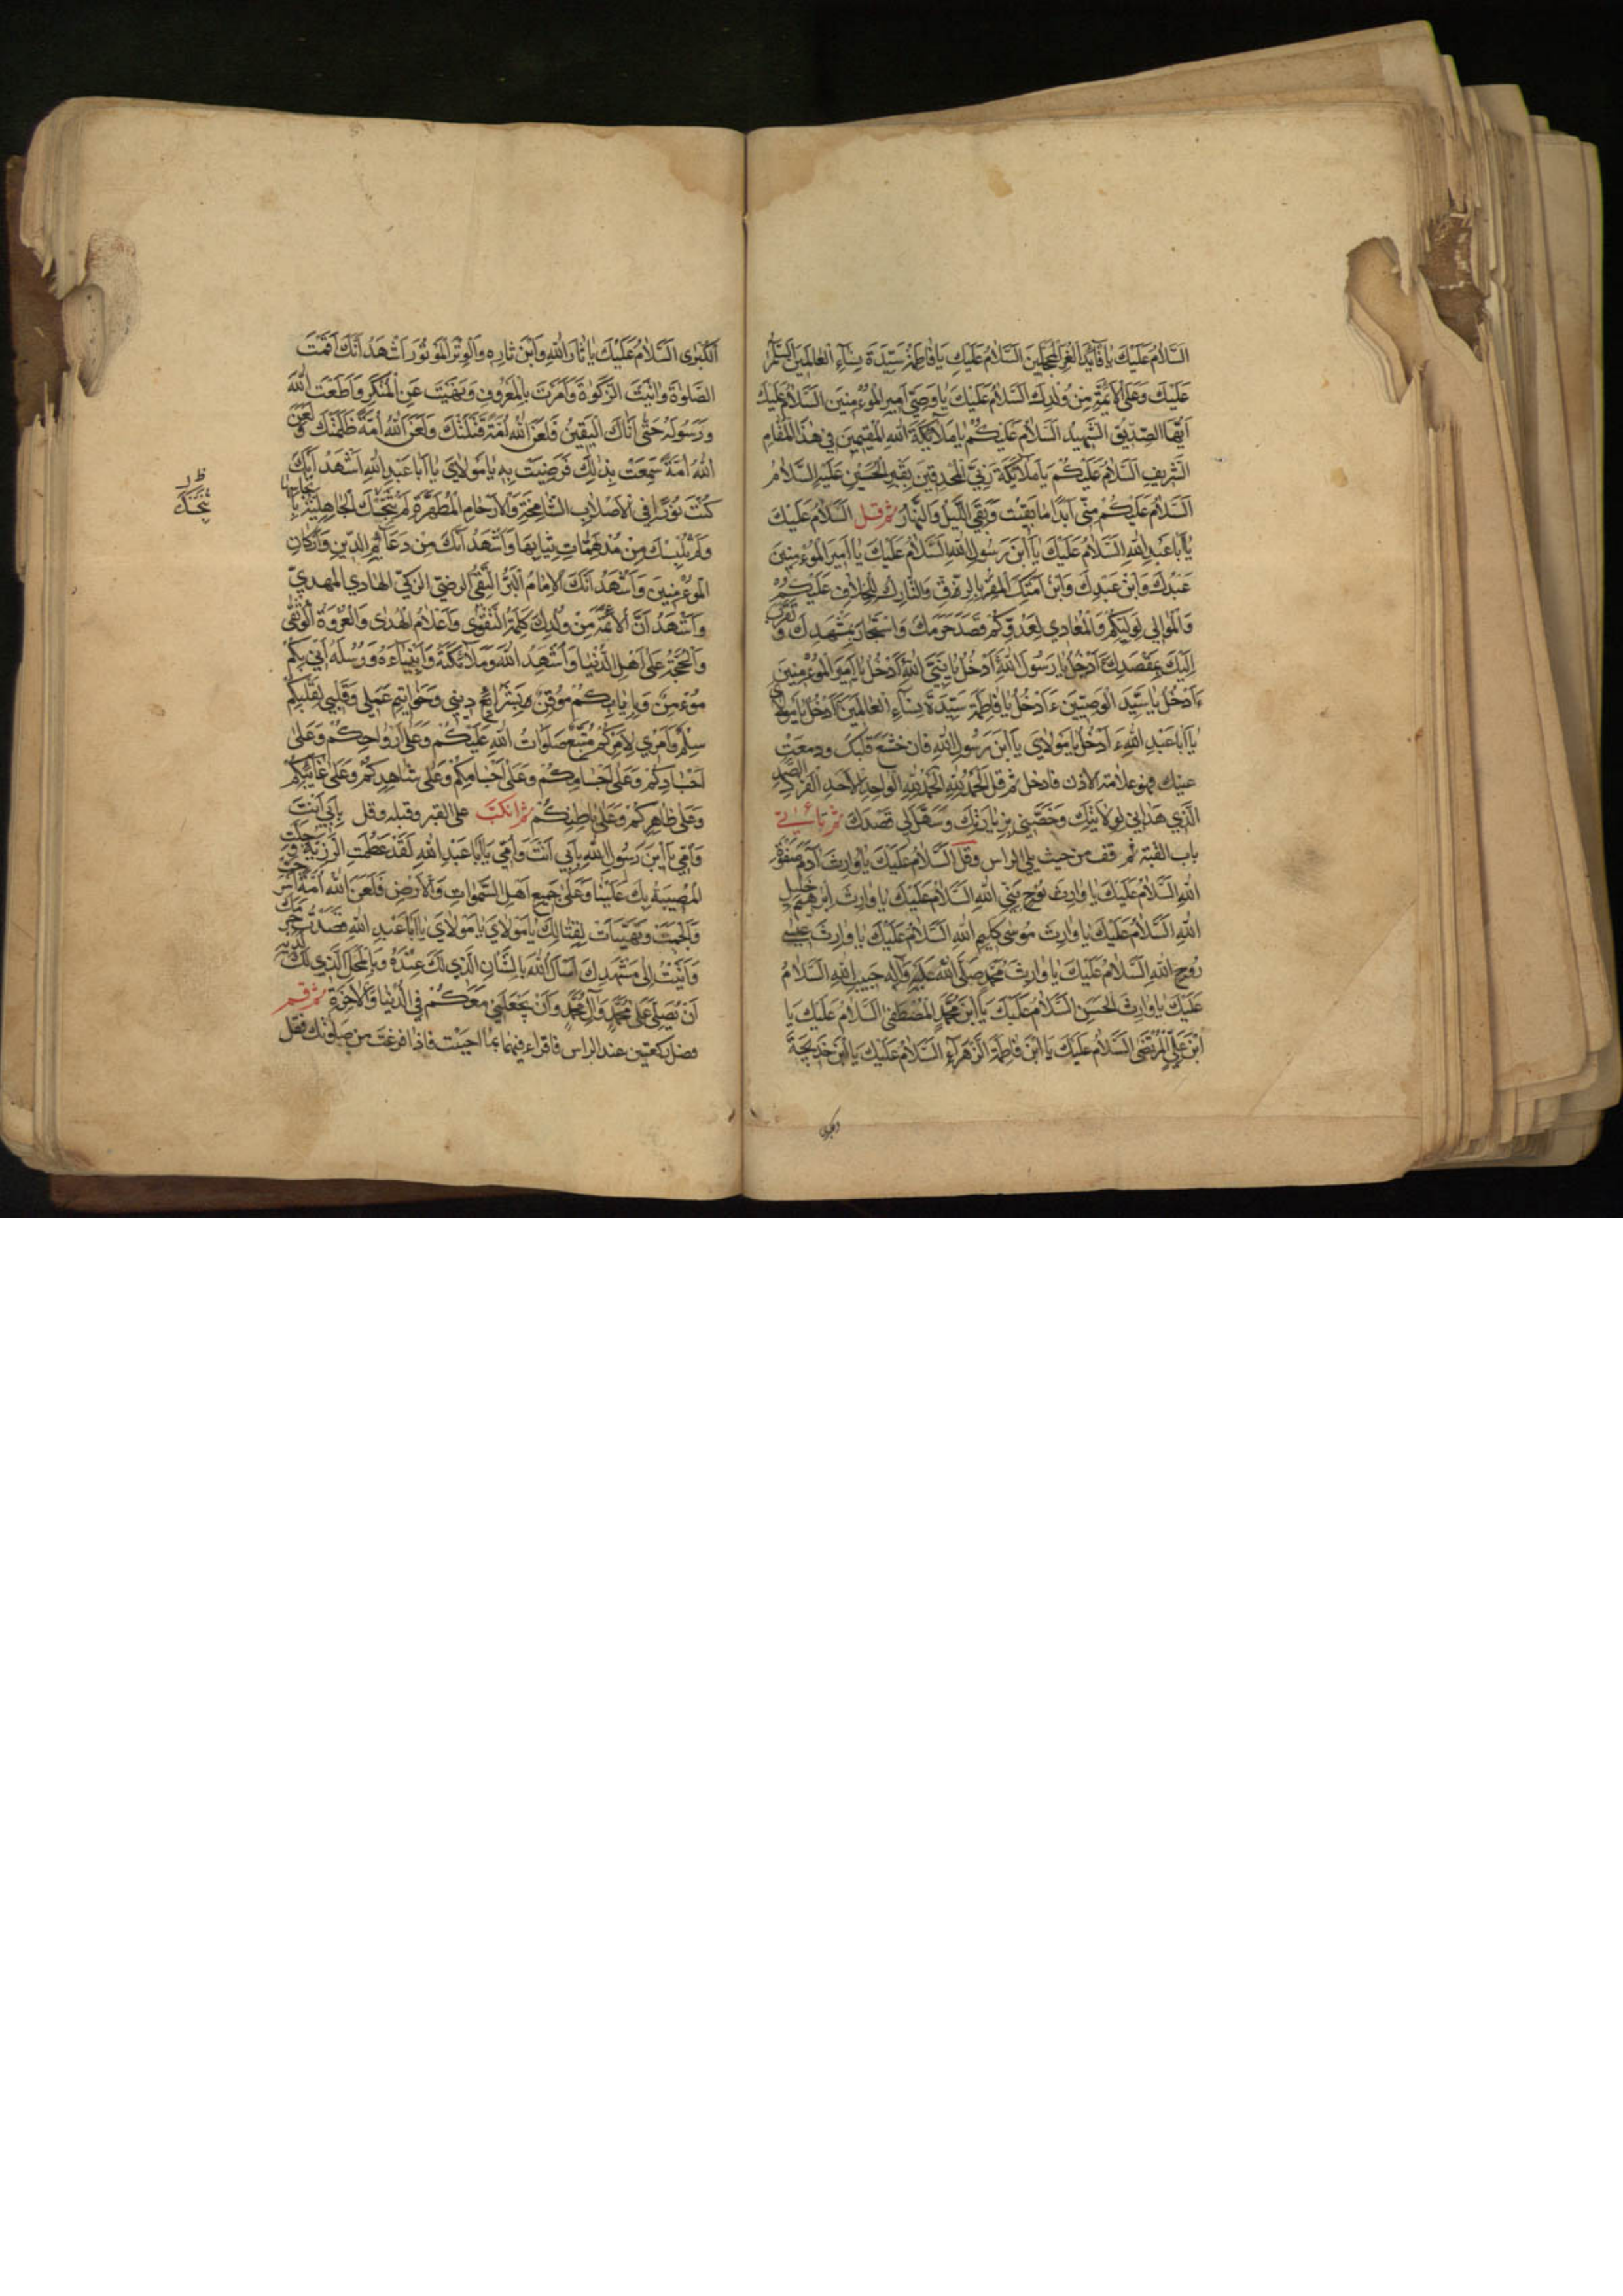 السَّلَامُ عَلَيْكَ يَا قَآئِدَ الْغُرِّ الْمُحَجَّلِينَ السَّلَامُ عَلَيْكِ يَا فَاطِمَةُ سَيِّدَةَ نِسَآءِ الْعَالَمِينَ السَّلَامُ
عَلَيْكَ وَعَلَى الْأَئِمَّةِ مِنْ وُلْدِكَ السَّلَامُ عَلَيْكَ يَا وَصِيَّ أَمِيرِ الْمُؤْمِنِينَ السَّلَامُ عَلَيْكَ
أَيُّهَا الصِّدِّيقُ الشَّهِيدُ السَّلَامُ عَلَيْكُمْ يَا مَلَآئِكَةَ اللهِ الْمُقِيمِينَ فِي هٰذَا الْمَقَامِ
الشَّرِيفِ السَّلَامُ عَلَيْكُمْ يَا مَلَآئِكَةَ رَبِّيَ الْمُحْدِقِينَ بِقَبْرِ الْحُسَيْنِ عَلَيْهِ السَّلَامُ
السَّلَامُ عَلَيْكُمْ مِنِّي أَبَدًا مَا بَقِيتُ وَبَقِيَ اللَّيْلُ وَالنَّهَارُ ثم قل السَّلَامُ عَلَيْكَ
يَا أَبَا عَبْدِ اللهِ السَّلَامُ عَلَيْكَ يَا ابْنَ رَسُولِ اللهِ السَّلَامُ عَلَيْكَ يَا أَمِيرَ الْمُؤْمِنِينَ
عَبْدُكَ وَابْنُ عَبْدِكَ وَابْنُ أَمَتِكَ الْمُقِرُّ بِالرِّقِّ وَالتَّارِكُ لِلْخِلَافِ عَلَيْكُمْ
وَالْمُوَالِي لِوَلِيِّكُمْ وَالْمُعَادِي لِعَدُوِّكُمْ قَصَدَ حَرَمَكَ وَاسْتَجَارَ بِمَشْهَدِكَ وَتَقَرَّبَ
إِلَيْكَ بِقَصْدِكَ ءَأَدْخُلُ يَا رَسُولَ اللهِ ءَأَدْخُلُ يَا نَبِيَّ اللهِ ءَأَدْخُلُ يَا أَمِيرَ الْمُؤْمِنِينَ
ءَأَدْخُلُ يَا سَيِّدَ الْوَصِيِّينَ ءَأَدْخُلُ يَا فَاطِمَةُ سَيِّدَةَ نِسَآءِ الْعَالَمِينَ ءَأَدْخُلُ يَا مَوْلَايَ
يَا أَبَا عَبْدِ اللهِ ءَأَدْخُلُ يَا مَوْلَايَ يَا ابْنَ رَسُولِ اللهِ فان خشع قلبك ودمعت
عينك فهو علامة الاذن فادخل ثم قل الْحَمْدُ لِلّٰهِ الْوَاحِدِ الْأَحَدِ الْفَرْدِ الصَّمَدِ
الَّذِي هَدَانِي لِوِلَايَتِكَ وَخَصَّنِي بِزِيَارَتِكَ وَسَهَّلَ لِي قَصْدَكَ ثم تأتي
باب القبة ثم قف من حيث يلي الراس وقل السَّلَامُ عَلَيْكَ يَا وَارِثَ آدَمَ صَفْوَةِ
اللهِ السَّلَامُ عَلَيْكَ يَا وَارِثَ نُوحٍ نَبِيِّ اللهِ السَّلَامُ عَلَيْكَ يَا وَارِثَ إِبْرٰهِيمَ خَلِيلِ
اللهِ السَّلَامُ عَلَيْكَ يَا وَارِثَ مُوسَى كَلِيمِ اللهِ السَّلَامُ عَلَيْكَ يَا وَارِثَ عِيسَى
رُوحِ اللهِ السَّلَامُ عَلَيْكَ يَا وَارِثَ مُحَمَّدٍ صَلَّى اللهُ عَلَيْهِ وَآلِهِ حَبِيبِ اللهِ السَّلَامُ
عَلَيْكَ يَا وَارِثَ الْحَسَنِ السَّلَامُ عَلَيْكَ يَا ابْنَ مُحَمَّدٍ الْمُصْطَفَى السَّلَامُ عَلَيْكَ يَا
ابْنَ عَلِيٍّ الْمُرْتَضَى السَّلَامُ عَلَيْكَ يَا ابْنَ فَاطِمَةَ الزَّهْرَآءِ السَّلَامُ عَلَيْكَ يَا ابْنَ خَدِيجَةَ
الْكُبْرَى السَّلَامُ عَلَيْكَ يَا ثَارَ اللهِ وَابْنَ ثَارِهِ وَالْوِتْرَ الْمَوْتُورَ أَشْهَدُ أَنَّكَ أَقَمْتَ
الصَّلٰوةَ وَآتَيْتَ الزَّكٰوةَ وَأَمَرْتَ بِالْمَعْرُوفِ وَنَهَيْتَ عَنِ الْمُنْكَرِ وَأَطَعْتَ اللهَ
وَرَسُولَهُ حَتَّى أَتَاكَ الْيَقِينُ فَلَعَنَ اللهُ أُمَّةً قَتَلَتْكَ وَلَعَنَ اللهُ أُمَّةً ظَلَمَتْكَ وَلَعَنَ
اللهُ أُمَّةً سَمِعَتْ بِذٰلِكَ فَرَضِيَتْ بِهِ يَا مَوْلَايَ يَا أَبَا عَبْدِ اللهِ أَشْهَدُ أَنَّكَ
كُنْتَ نُورًا فِي الْأَصْلَابِ الشَّامِخَةِ وَالْأَرْحَامِ الْمُطَهَّرَةِ لَمْ تُنَجِّسْكَ الْجَاهِلِيَّةُ بِأَنْجَاسِهَا
وَلَمْ تُلْبِسْكَ مِنْ مُدْلَهِمَّاتِ ثِيَابِهَا وَأَشْهَدُ أَنَّكَ مِنْ دَعَآئِمِ الدِّينِ وَأَرْكَانِ
الْمُؤْمِنِينَ وَأَشْهَدُ أَنَّكَ الْإِمَامُ الْبَرُّ التَّقِيُّ الرَّضِيُّ الزَّكِيُّ الْهَادِي الْمَهْدِيُّ
وَأَشْهَدُ أَنَّ الْأَئِمَّةَ مِنْ وُلْدِكَ كَلِمَةُ التَّقْوَى وَأَعْلَامُ الْهُدَى وَالْعُرْوَةُ الْوُثْقَى
وَالْحُجَّةُ عَلَى أَهْلِ الدُّنْيَا وَأُشْهِدُ اللهَ وَمَلَآئِكَتَهُ وَأَنْبِيَآءَهُ وَرُسُلَهُ أَنِّي بِكُمْ
مُؤْمِنٌ وَبِإِيَابِكُمْ مُوقِنٌ بِشَرَايِعِ دِينِي وَخَوَاتِيمِ عَمَلِي وَقَلْبِي لِقَلْبِكُمْ
سِلْمٌ وَأَمْرِي لِأَمْرِكُمْ مُتَّبِعٌ صَلَوَاتُ اللهِ عَلَيْكُمْ وَعَلَى أَرْوَاحِكُمْ وَعَلَى
أَجْسَادِكُمْ وَعَلَى أَجْسَامِكُمْ وَعَلَى شَاهِدِكُمْ وَعَلَى غَآئِبِكُمْ
وَعَلَى ظَاهِرِكُمْ وَعَلَى بَاطِنِكُمْ ثم انكبّ على القبر وقبله وقل بِأَبِي أَنْتَ
وَأُمِّي يَا ابْنَ رَسُولِ اللهِ بِأَبِي أَنْتَ وَأُمِّي يَا أَبَا عَبْدِ اللهِ لَقَدْ عَظُمَتِ الرَّزِيَّةُ وَجَلَّتِ
الْمُصِيبَةُ بِكَ عَلَيْنَا وَعَلَى جَمِيعِ أَهْلِ السَّمٰوَاتِ وَالْأَرْضِ فَلَعَنَ اللهُ أُمَّةً أَسْرَجَتْ
وَأَلْجَمَتْ وَتَهَيَّأَتْ لِقِتَالِكَ يَا مَوْلَايَ يَا مَوْلَايَ يَا أَبَا عَبْدِ اللهِ قَصَدْتُ حَرَمَكَ
وَأَتَيْتُ إِلَى مَشْهَدِكَ أَسْأَلُ اللهَ بِالشَّأْنِ الَّذِي لَكَ عِنْدَهُ وَبِالْمَحَلِّ الَّذِي لَكَ لَدَيْهِ
أَنْ يُصَلِّيَ عَلَى مُحَمَّدٍ وَآلِ مُحَمَّدٍ وَأَنْ يَجْعَلَنِي مَعَكُمْ فِي الدُّنْيَا وَالْآخِرَةِ ثم قم
وصل ركعتين عند الراس فاقراء فيهما بما احببت فاذا فرغت من صلوتك فقل